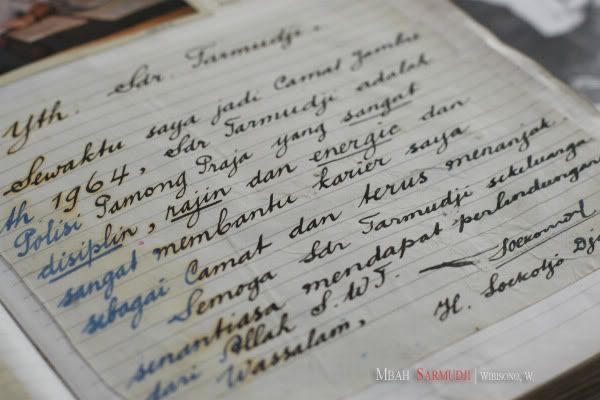 Yth. Sdr. Tarmudji.
Sewaktu saya jadi Camat Jambu
th 1964, Sdr Tarmudji adalah
Polisi Pamong Praja yang sangat
disiplin, rajin dan energic dan
sangat membantu karier saya
sebagai Camat dan terus menanjak.
Semoga Sdr Tarmudji sekeluarga
senantiasa mendapat perlindungan
dari Allah S.W.T.
Wassalam,
H. Soekotjo
MBAH SARMUDJI | WIBISONO, W.